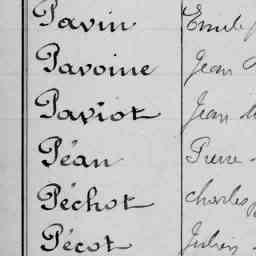 Pavin Emile
Pavoine Jean
Paviot Jean
Péan Pierre
Péchot Charles
Pécot Julien